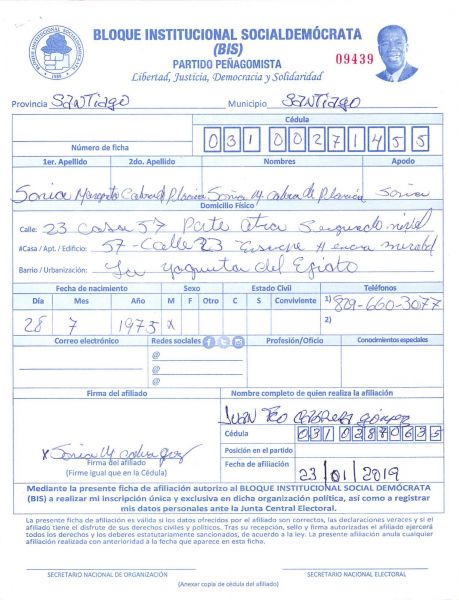 BLOQUE INSTITUCIONAL SOCIALDEMÓCRATA
(BIS)
PARTIDO PEÑAGOMISTA
Libertad, Justicia, Democracia y Solidaridad
09439
Provincia Santiago Municipio Santiago
Cédula
Número de ficha 031 0027145 5
1er. Apellido 2do. Apellido Nombres Apodo
Sonia Sonia M Cabrera Sonia
Domicilio Físico
Calle: 23 casa 57 Parte atra Segundo nivel
#Casa / Apt. / Edificio: 57 - Calle 23
Barrio / Urbanización: La yaguita del Ejido
Fecha de nacimiento Sexo Estado Civil Teléfonos
Día Mes Año M F Otro C S Conviviente 1) 809-660-3077
28 7 1973 x 2)
Correo electrónico Redes sociales Profesión/Oficio Conocimientos especiales
@
@
@
Firma del afiliado Nombre completo de quien realiza la afiliación
Juan Teo Cabrera Gómez
Cédula 031 0287063 5
x Sonia M Posición en el partido
Firma del afiliado
(Firme igual que en la Cédula) Fecha de afiliación 23/01/2019
Mediante la presente ficha de afiliación autorizo al BLOQUE INSTITUCIONAL SOCIAL DEMÓCRATA
(BIS) a realizar mi inscripción única y exclusiva en dicha organización política, así como a registrar
mis datos personales ante la Junta Central Electoral.
La presente ficha de afiliación es válida si los datos ofrecidos por el afiliado son correctos, las declaraciones veraces y si el
afiliado tiene el disfrute de sus derechos civiles y políticos. Tras su recepción, sello y firma autorizadas el afiliado ejercerá
todos los derechos y los deberes estatutariamente sancionados, de acuerdo a la ley. La presente afiliación anula cualquier
afiliación realizada con anterioridad a la fecha que aparece en esta ficha.
SECRETARIO NACIONAL DE ORGANIZACIÓN SECRETARIO NACIONAL ELECTORAL
(Anexar copia de cédula del afiliado)